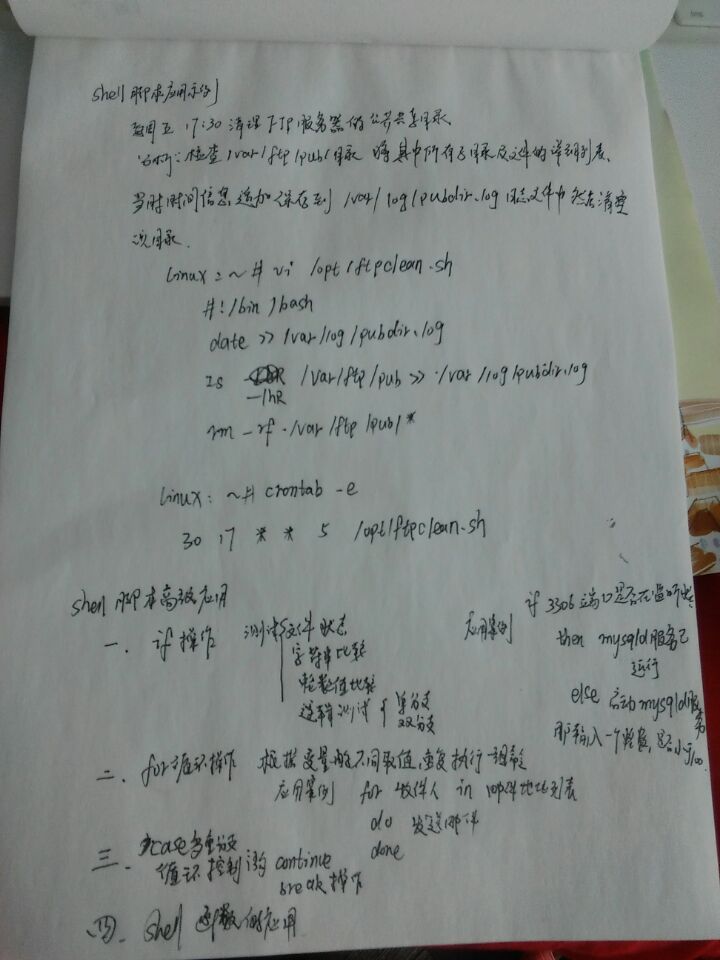 shell 脚本应用示例
每周五 17:30 清理 FTP服务器的公共共享目录
分析:检查 /var/ftp/pub/目录 将其中所有子目录及文件的详细列表、
当时时间信息追加保存到 /var/log/pubdir.log 日志文件中 然后清空
该目录.
linux:~# vi /opt/ftpclean.sh
#!/bin/bash
date >> /var/log/pubdir.log
ls /var/ftp/pub >> /var/log/pubdir.log
-lhR
rm -rf /var/ftp/pub/*
linux: ~# crontab -e
30 17 * * 5 /opt/ftpclean.sh
shell 脚本高级应用
一. if 操作 测试文件状态
字符串比较
整数值比较
逻辑测试 单分支
双分支
应用案例 if 3306 端口是否在监听
then mysqld服务已
运行
else 启动mysqld服务
输入一个整数, 是否小于100
二. for循环操作 根据变量的不同取值,重复执行一组命令
应用案例 for 收件人 in 邮件地址列表
do 发送邮件
done
三. case多重分支
循环控制语句 continue
break 操作
四. shell 函数的应用